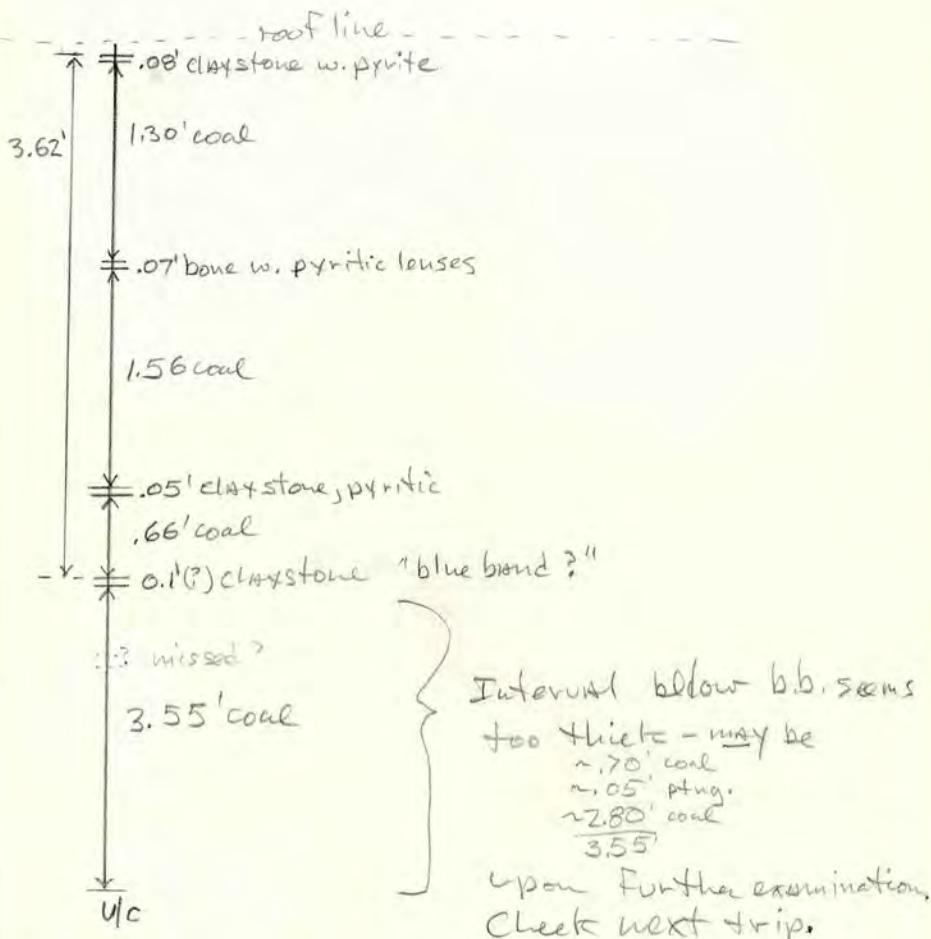 roof line
.08' claystone w. pyrite
3.62'
1.30' coal
.07' bone w. pyritic lenses
1.56 coal
.05' claystone, pyritic
.66' coal
0.1'(?) claystone "blue band?"
missed?
3.55' coal
Interval below b.b. seems
too thick - may be
~.70' coal
~.05' ptng.
~2.80' coal
3.55'
upon further examination.
Check next trip.
U/C